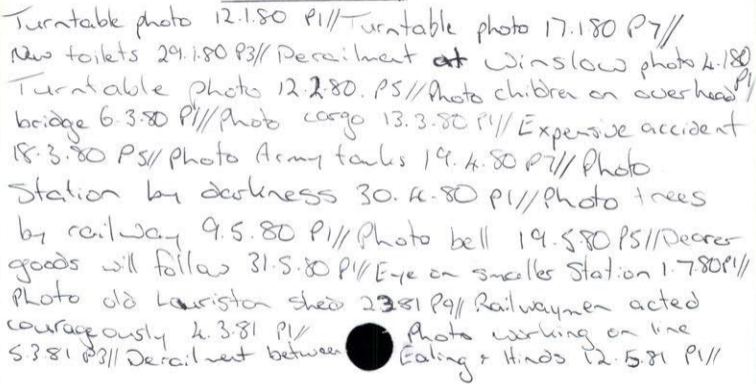 Turntable photo 12.1.80 P1//Turntable photo 17.1.80 P7//
New toilets 29.1.80 P3// Derailment at Winslow photo 4.1.80 P1/
Turntable photo 12.2.80. P5//Photo children on overhead
bridge 6.3.80 P1//Photo cargo 13.3.80 P1// Expensive accident
18.3.80 P5// Photo Army tanks 19.4.80 P7// Photo
Station by darkness 30.4.80 P1//Photo trees
by railway 9.5.80 P1// Photo bell 19.5.80 P5//Dearer
goods will follow 31.5.80 P1// Eye on smaller Station 1.7.80 P1//
Photo old Lauriston shed 2381 P9// Railwaymen acted
courageously 4.3.81 P1// Photo working on line
5.3.81 P3// Derailment between Ealing & Hinds 12.5.81 P1//